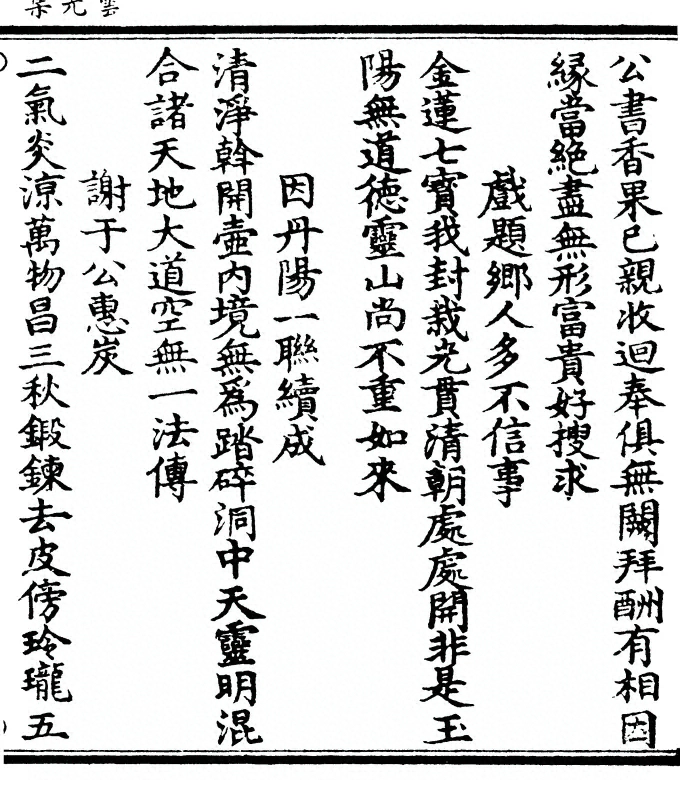 公書香果已親收迴奉俱無闕拜酬有相因
緣當絕盡無形富貴好搜求
戲題鄉人多不信事
金蓮七寶我封栽光貫清朝處處開非是玉
陽無道德靈山尚不重如來
因丹陽一聯續成
清淨斡開壺内境無爲踏碎洞中天靈明混
合諸天地大道空無一法傳
謝于公惠炭
二氣炎涼萬物昌三秋鍛鍊去皮傍玲瓏五